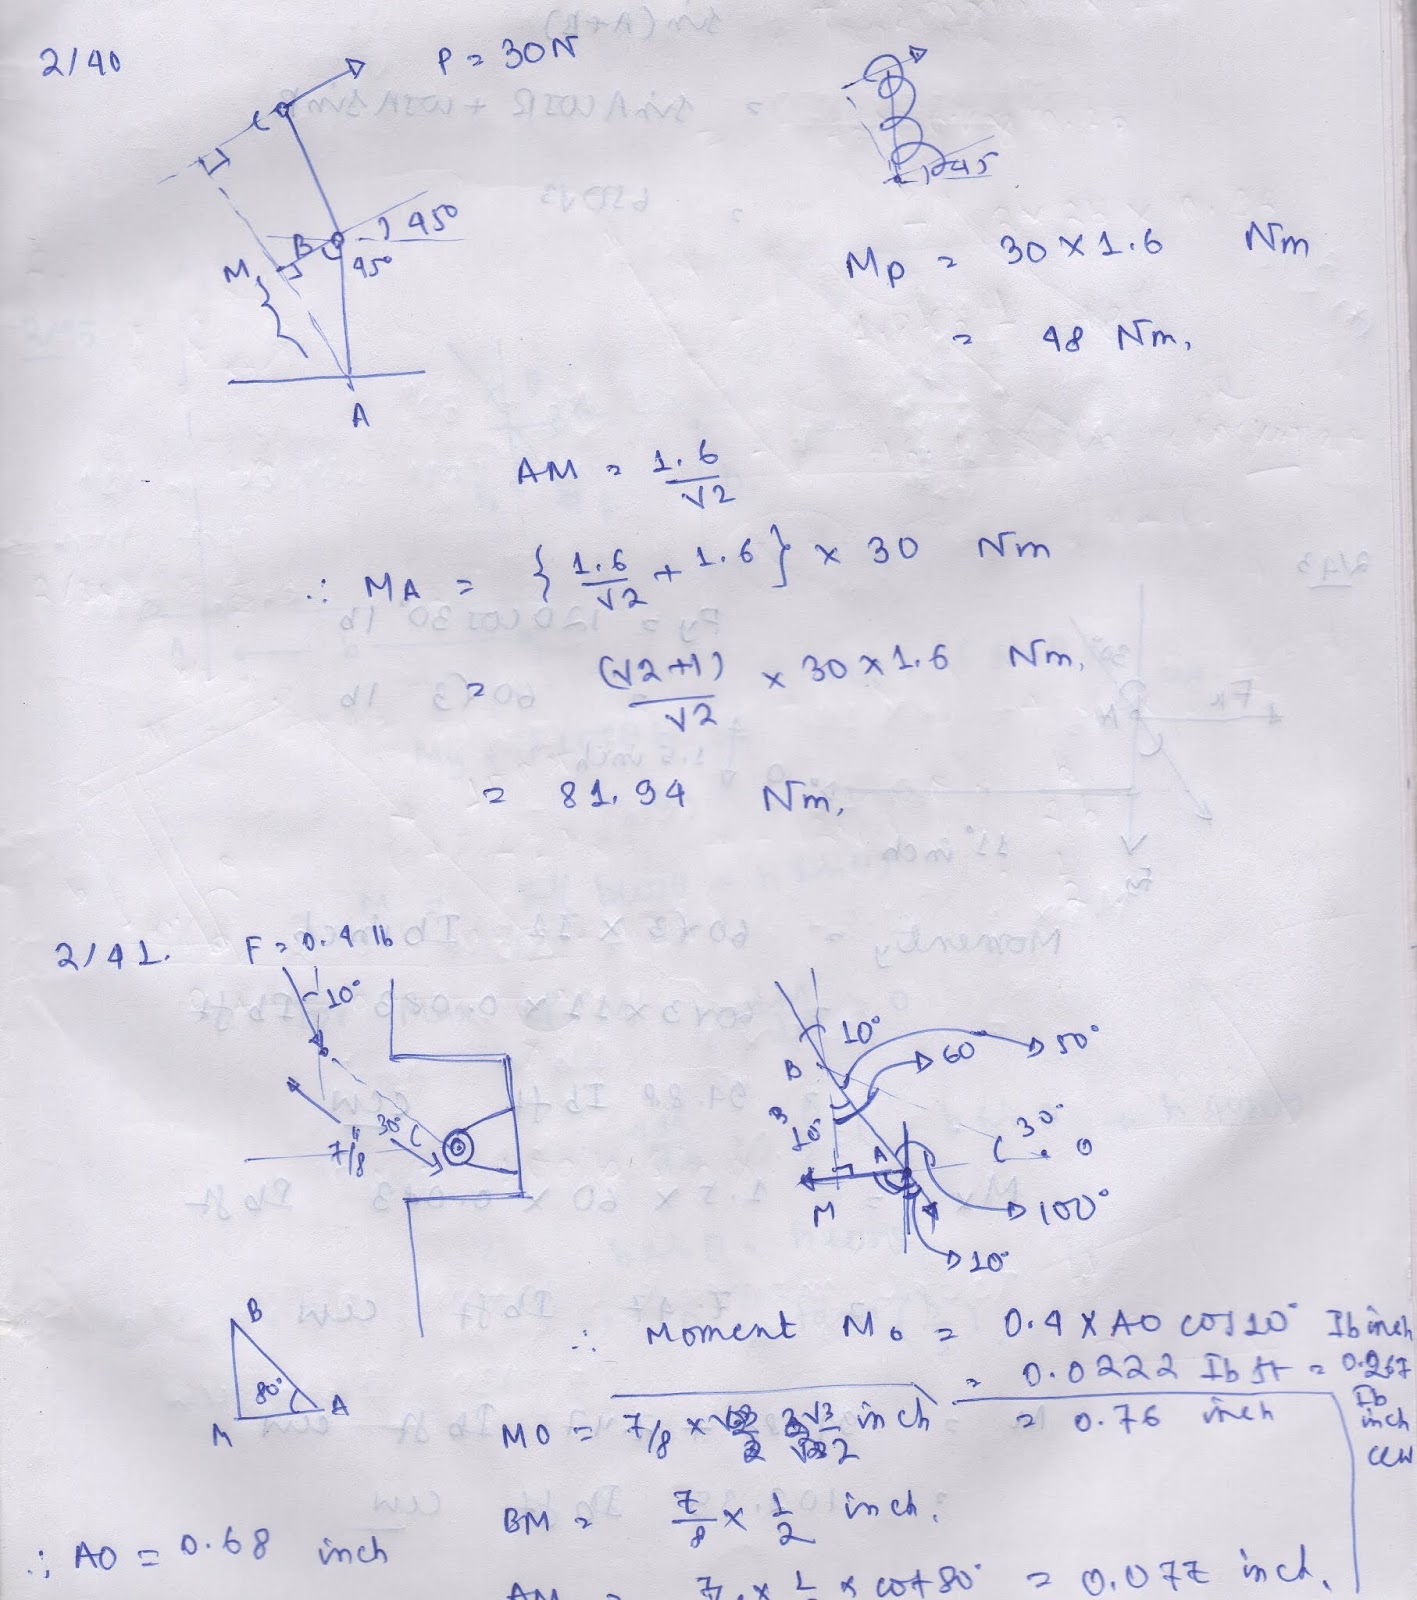 2/40
P = 30N
C
45°
B
45°
M
A
45
Mp = 30 × 1.6 Nm
= 48 Nm.
AM = 1.6/√2
∴ MA = {1.6/√2 + 1.6} × 30 Nm
= (√2+1)/√2 × 30 × 1.6 Nm.
= 81.94 Nm.
2/41.
F = 0.4 lb
10°
30°
7/8"
10°
50°
60°
B
B
10°
30°
O
A
M
100°
10°
B
80°
A
M
∴ Moment Mo = 0.4 × AO cos10° Ib inch
= 0.0222 Ib ft = 0.267 Ib inch ccw
MO = 7/8 × √3/2 inch = 0.76 inch
BM = 7/8 × 1/2 inch.
∴ AO = 0.68 inch
AM = 7 × 1 × cot80° = 0.077 inch.